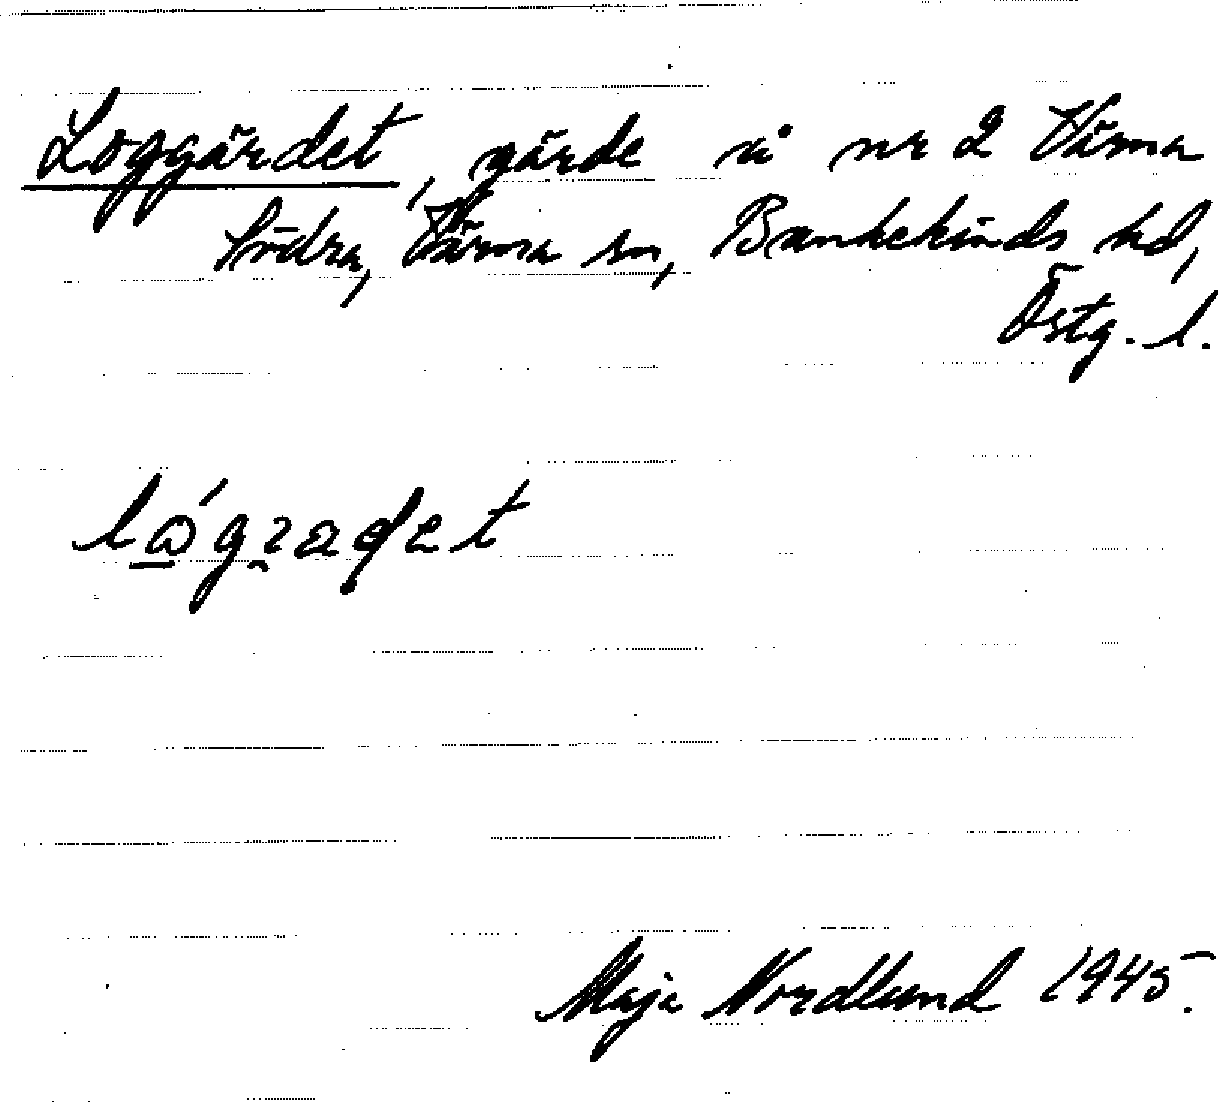 Loggärdet, gärde å nr 2 Värna
Södra, Värna sn, Bankekinds hd,
Östg. l.
Maja Nordlund 1945.